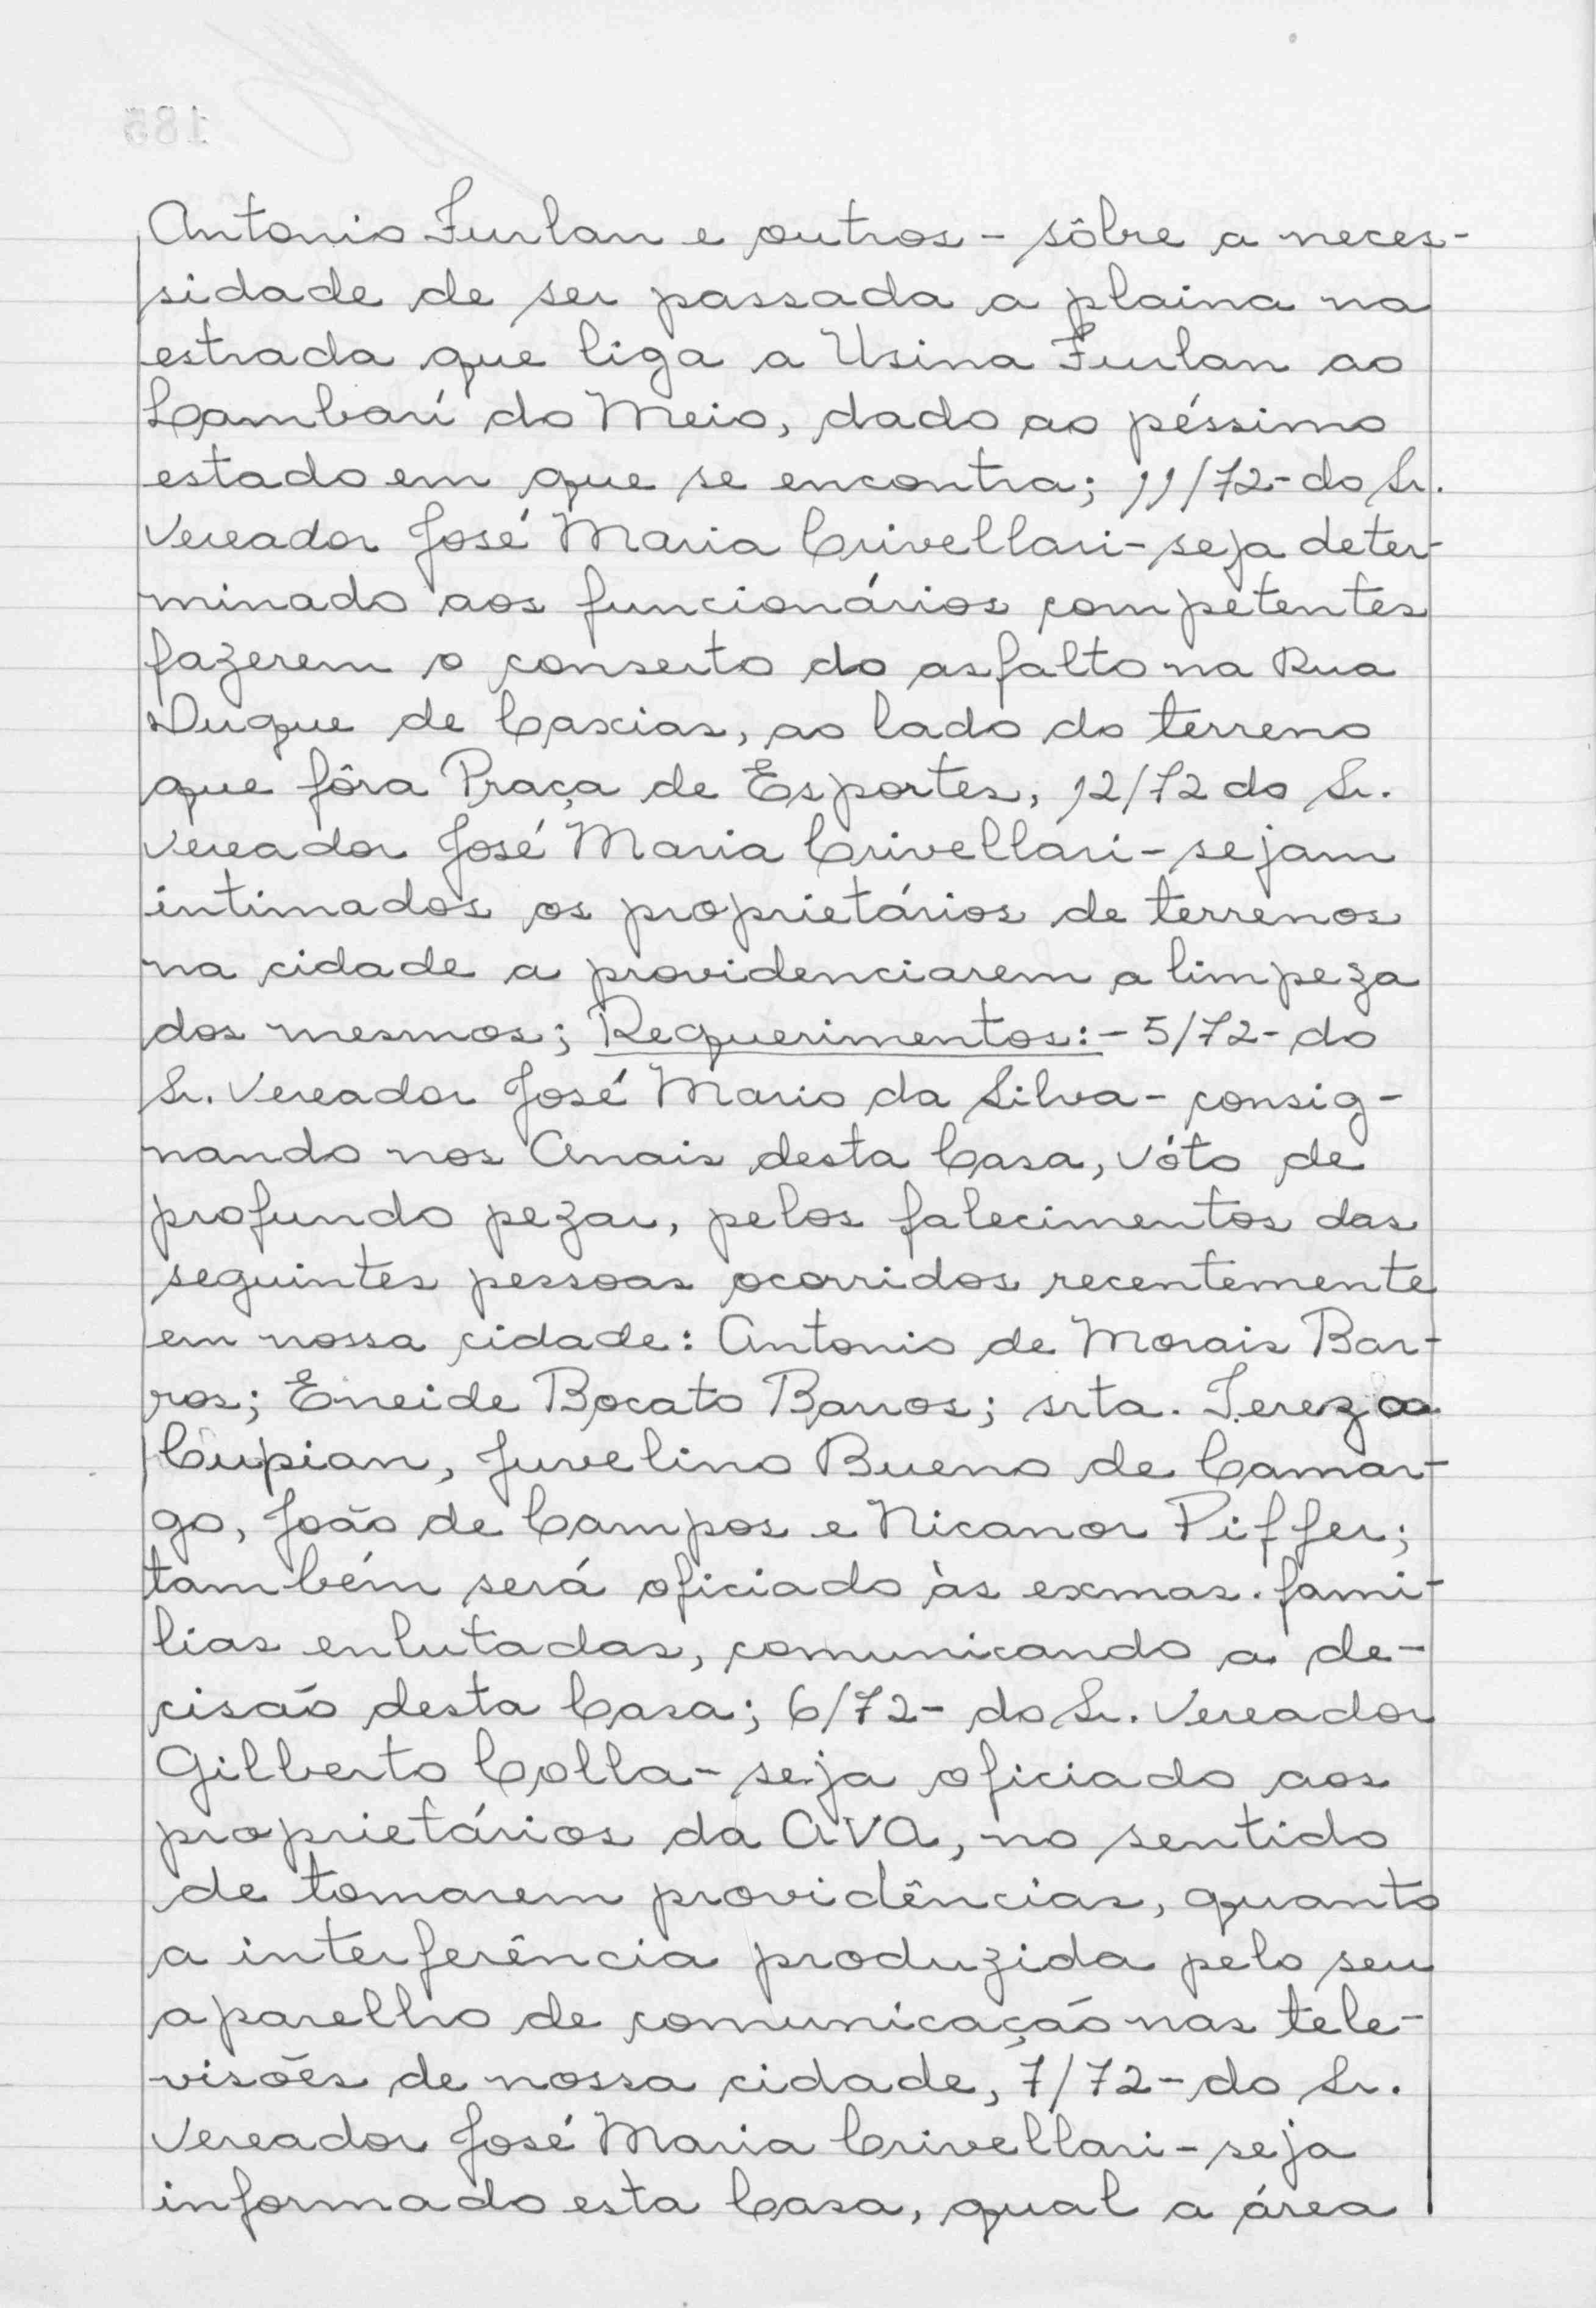 Antonio Furlan e outros - sôbre a neces-
sidade de ser passada a plaina na
estrada que liga a Usina Furlan ao
Cambarí do Meio, dado ao péssimo
estado em que se encontra; 11/72- do Sr.
Vereador José Maria Crivellari - seja deter-
minado aos funcionários competentes
fazerem o conserto do asfalto na Rua
Duque de Caxias, ao lado do terreno
que fôra Praça de Esportes, 12/72 do Sr.
Vereador José Maria Crivellari - sejam
intimados os proprietários de terrenos
na cidade a providenciarem a limpeza
dos mesmos; Requerimentos: - 5/72- do
Sr. Vereador José Mario da Silva - consig-
nando nos Anais desta Casa, vóto de
profundo pezar, pelos falecimentos das
seguintes pessoas ocorridos recentemente
em nossa cidade: Antonio de Morais Bar-
ros; Eneide Bocato Barros; srta. Tereza
Cupian, Juvelino Bueno de Camar-
go, João de Campos e Nicanor Piffer;
também será oficiado às exmas. fami-
lias enlutadas, comunicando a de-
cisão desta Casa; 6/72- do Sr. Vereador
Gilberto Colla - seja oficiado aos
proprietários da AVA, no sentido
de tomarem providências, quanto
a interferência produzida pelo seu
aparelho de comunicação nas tele-
visões de nossa cidade, 7/72- do Sr.
Vereador José Maria Crivellari - seja
informado esta Casa, qual a área